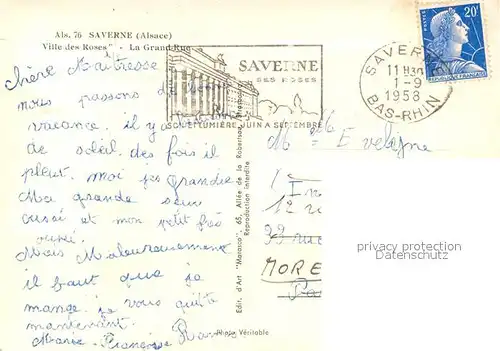 Als. 76 SAVERNE (Alsace)
"Ville des Roses" - La Grand'Rue
chère Maîtresse
nous passons de bonne
vacance. il y a
de soleil. des fois il
pleut. moi je grandie
Ma grande seur
aussi et mon petit frè
aussi.
Mais Maleureusement
il faut que je
mange. je vous quitte
maintenant.
Marie-Françoise
Edit. d'Art "Marasco", 65, Allée de la Robertsau, Strasbourg
Reproduction Interdite
Photo Véritable
SAVERNE
SES ROSES
SON ET LUMIÈRE JUIN A SEPTEMBRE
SAVERNE
11 H30
1-9
1958
BAS-RHIN
POSTES
20F
REPUBLIQUE FRANÇAISE
Melle Evelyne
12 r
99 rue
MORE
Pa
privacy protection
Datenschutz